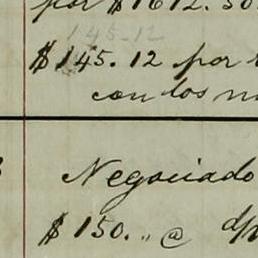 por $1612.50
145-12
$145.12 por
con los
Negociado
$150. „ @ d/p